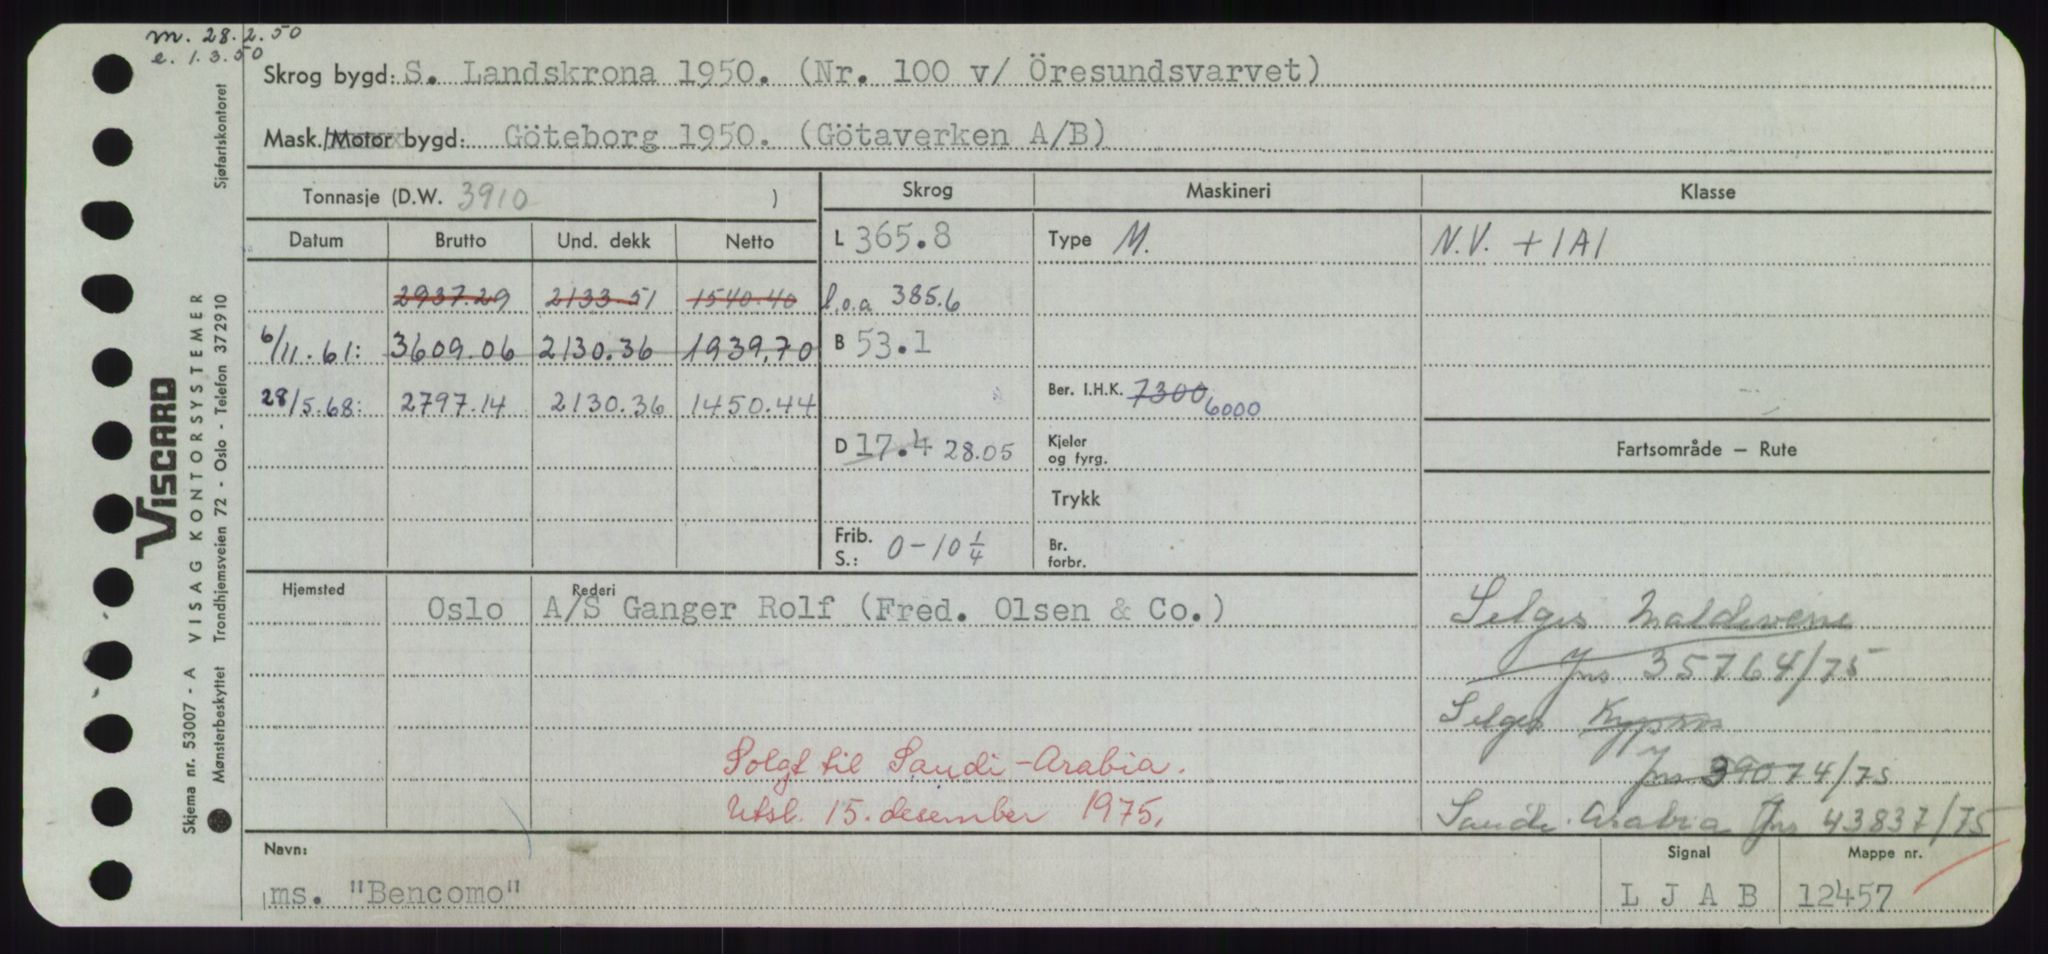 m. 28.2.50
e. 1.3.50
Skrog bygd: S. Landskrona 1950. (Nr. 100 v/ Öresundsvarvet)
Mask./Motor bygd: Göteborg 1950. (Götaverken A/B)
Tonnasje (D.W. 3910 )
Skrog Maskineri Klasse
Datum Brutto Und. dekk Netto
L 365.8 Type M. N.V. +1A1
2937.29 2133.51 1540.40 l.o.a 385.6
6/11.61: 3609.06 2130.36 1939,70 B 53.1
28/5.68: 2797.14 2130.36 1450.44 Ber. I.H.K. 7300 6000
D 17.4 28.05 Kjeler og fyrg. Fartsområde — Rute
Trykk
Frib. S.: 0-10 1/4 Br. forbr.
Hjemsted Rederi
Oslo A/S Ganger Rolf (Fred. Olsen & Co.)
Selges Maldivene
Jns 35764/75
Selges Kypros
Jns 39074/75
Solgt til Saudi-Arabia.
Utsl. 15. desember 1975.
Saudi-Arabia Jns 43837/75
Navn: Signal Mappe nr.
ms. "Bencomo" L J A B 12457
Skjema nr. 53007 - A VISAG KONTORSYSTEMER
VISCARD
Mønsterbeskyttet Trondhjemsveien 72 - Oslo - Telefon 372910 Sjøfartskontoret